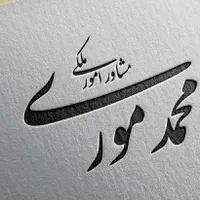 مشاور امور ملکی
محمد موری